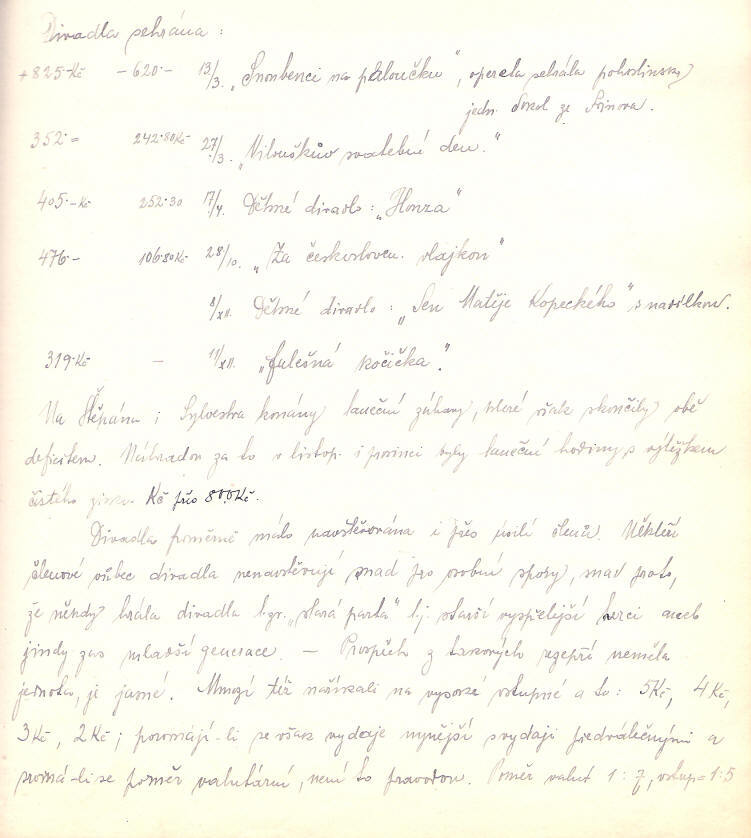 Divadla sehrána :
+ 825·-Kč - 620·- 13/3. „Snoubenci na paloučku", opereta sehrála pohostinsky
jedn. Sokol ze Svinova.
352·= 242·80Kč 27/3. „Vilouškův svatební den."
405·-Kč 252·30 17/4. Dětské divadlo : „Honza"
476·- 106·80Kč 28/10. „Za českosloven. vlajkou"
8/XII. Dětské divadlo : „Sen Matěje Kopeckého" s nadílkou.
319·Kč - 11/XII. „Falešná kočička."
Na Štěpána i Sylvestra konány taneční zábavy, které však skončily obě
deficitem. Náhradou za to v listop. i prosinci byly taneční hodiny s výtěžkem
čistého zisku Kč přes 800Kč.
Divadla poměrně málo navštěvována i přes úsilí členů. Někteří
členové vůbec divadla nenavštěvují snad pro osobní spory, snad proto,
že někdy hrála divadla tzv. „stará parta" tj. starší vyspělejší herci aneb
jindy zas mladší generace. - Prospěch z takových rozepří neměla
jednota, je jasné. Mnozí též naříkali na vysoké vstupné a to : 5Kč, 4Kč,
3Kč, 2Kč ; porovnají-li se však vydaje nynější s vydaji předválečnými a
srovná-li se poměr valutární, není to pravdou. Poměr valut 1 : 7, vstup = 1:5